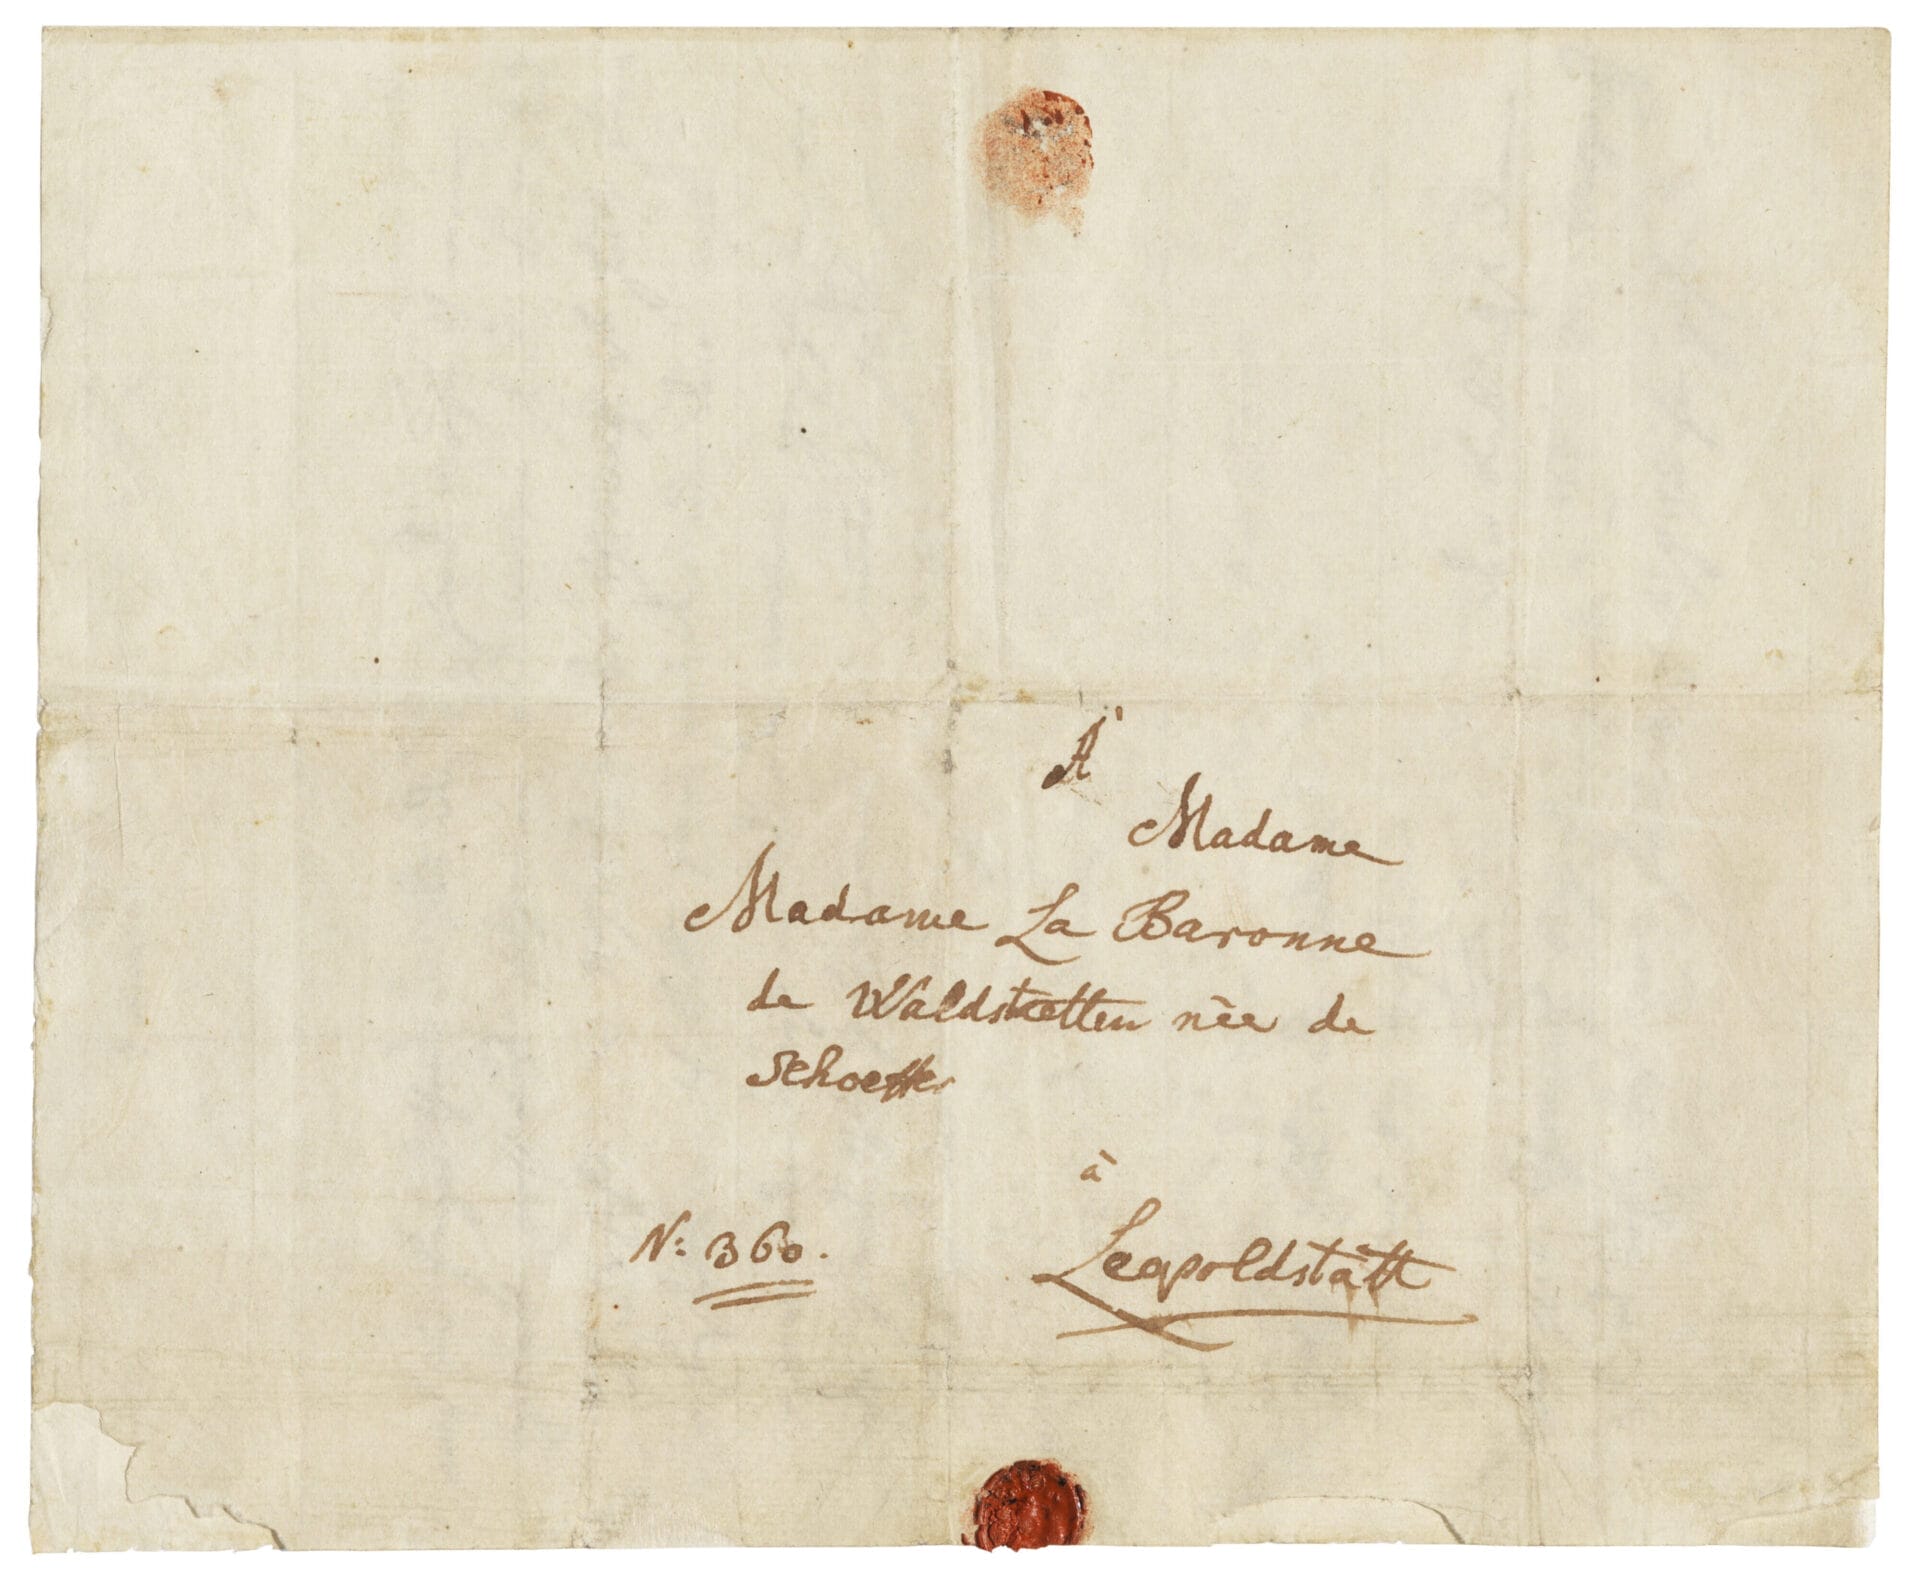 À
Madame
Madame La Baronne
de Waldstætten nèe de
Schoeffer
à
Leopoldstätt
N: 360.